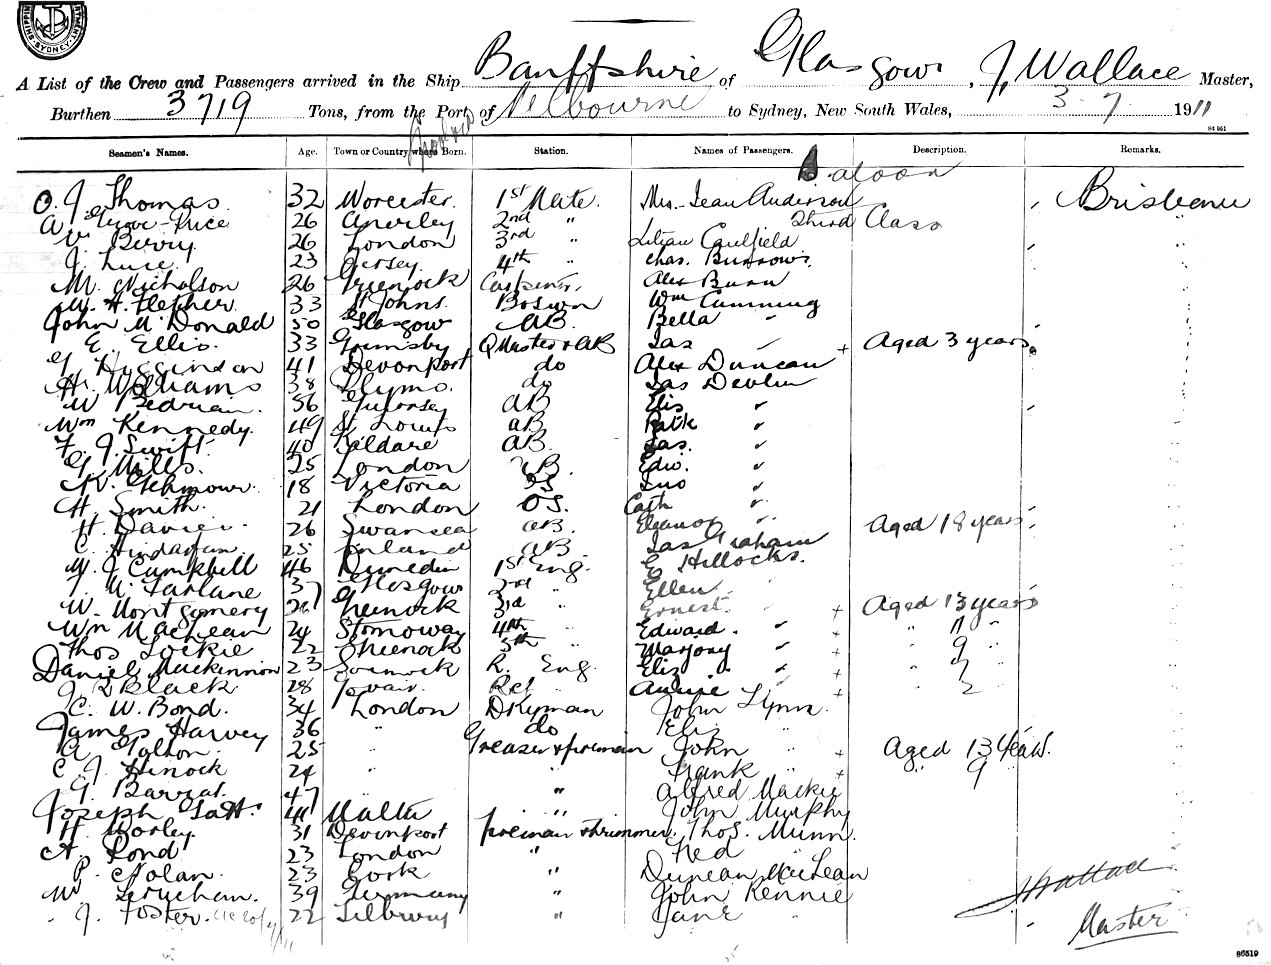 SHIPPING DEPARTMENT. SYDNEY.
A List of the Crew and Passengers arrived in the Ship Banffshire of Glasgow, J, Wallace Master,
Burthen 3719 Tons, from the Port of Melbourne to Sydney, New South Wales, 3-7- 1911
84 951
Seamen's Names. Age. Town or Country where Born. Station. Names of Passengers. Description. Remarks.
Saloon
O. J. Thomas. 32 Worcester. 1st Mate. Mrs. Jean Anderson Brisbane
A. Price 26 Anerley 2nd " Third Class
V. Berry 26 London 3rd " Lilian Caulfield
J. Luce 23 Jersey 4th " Chas. Burrows.
M. Nicholson 26 Greenock Carpenter. Alex Bunn
W. H. Fletcher. 33 St Johns. Bosun Wm Cumming
John McDonald 50 Glasgow AB. Bella "
E. Ellis. 33 Grimsby Q Master & AB Jas " + Aged 3 years
G. Higginson 41 Devonport do Alex Duncan
H. Williams 38 Plymo. do Jas Devlin
W. 56 Guernsey AB Elis "
Wm Kennedy. 49 St Louis AB Patk "
F. J. Swift. 40 Kildare AB. Jas. "
G. Mills. 25 London AB. Edw. "
K. 18 Victoria OS Jno "
H. Smith. 21 London OS. Cath "
H. Davies. 26 Swansea AB. Eleanor " Aged 18 years
C. 25 Finland AB. Jas Graham
M. J. Campbell 46 Dunedin 1st Eng. E Hillocks.
J. McFarlane 37 Glasgow 2nd " Ellen "
W. Montgomery 26 Greenock 3rd " Ernest. " + Aged 13 years
Wm MacLean 24 Stornoway 4th " Edward. " + " 11 "
Thos Lockie 22 Greenock 5th " Marjory " + " 9 "
Daniel Mackinnon 23 Greenock R. Eng. Eliz " + " 7 "
J. S. Black 28 Govan. Ref " Annie " + " 2 "
C. W. Bond. 34 London Dkyman John Flynn.
James Harvey 36 " do Elis "
A Galton. 25 " Greaser & fireman John " + Aged 13 Years.
C. J. Hinock 24 " " Frank " + " 9 "
G. Barrat. 47 " " Alfred Mackie
Joseph 41 Malta " John Murphy
H. Morley. 31 Devonport fireman & trimmer. Thos. Munn.
A. Pond 23 London " Ned "
P. Nolan. 23 Cork " Duncan MacLean
W. 39 Germany " John Rennie
J. Foster. 22 Tilbury " Jane "
J Wallace
Master
86519